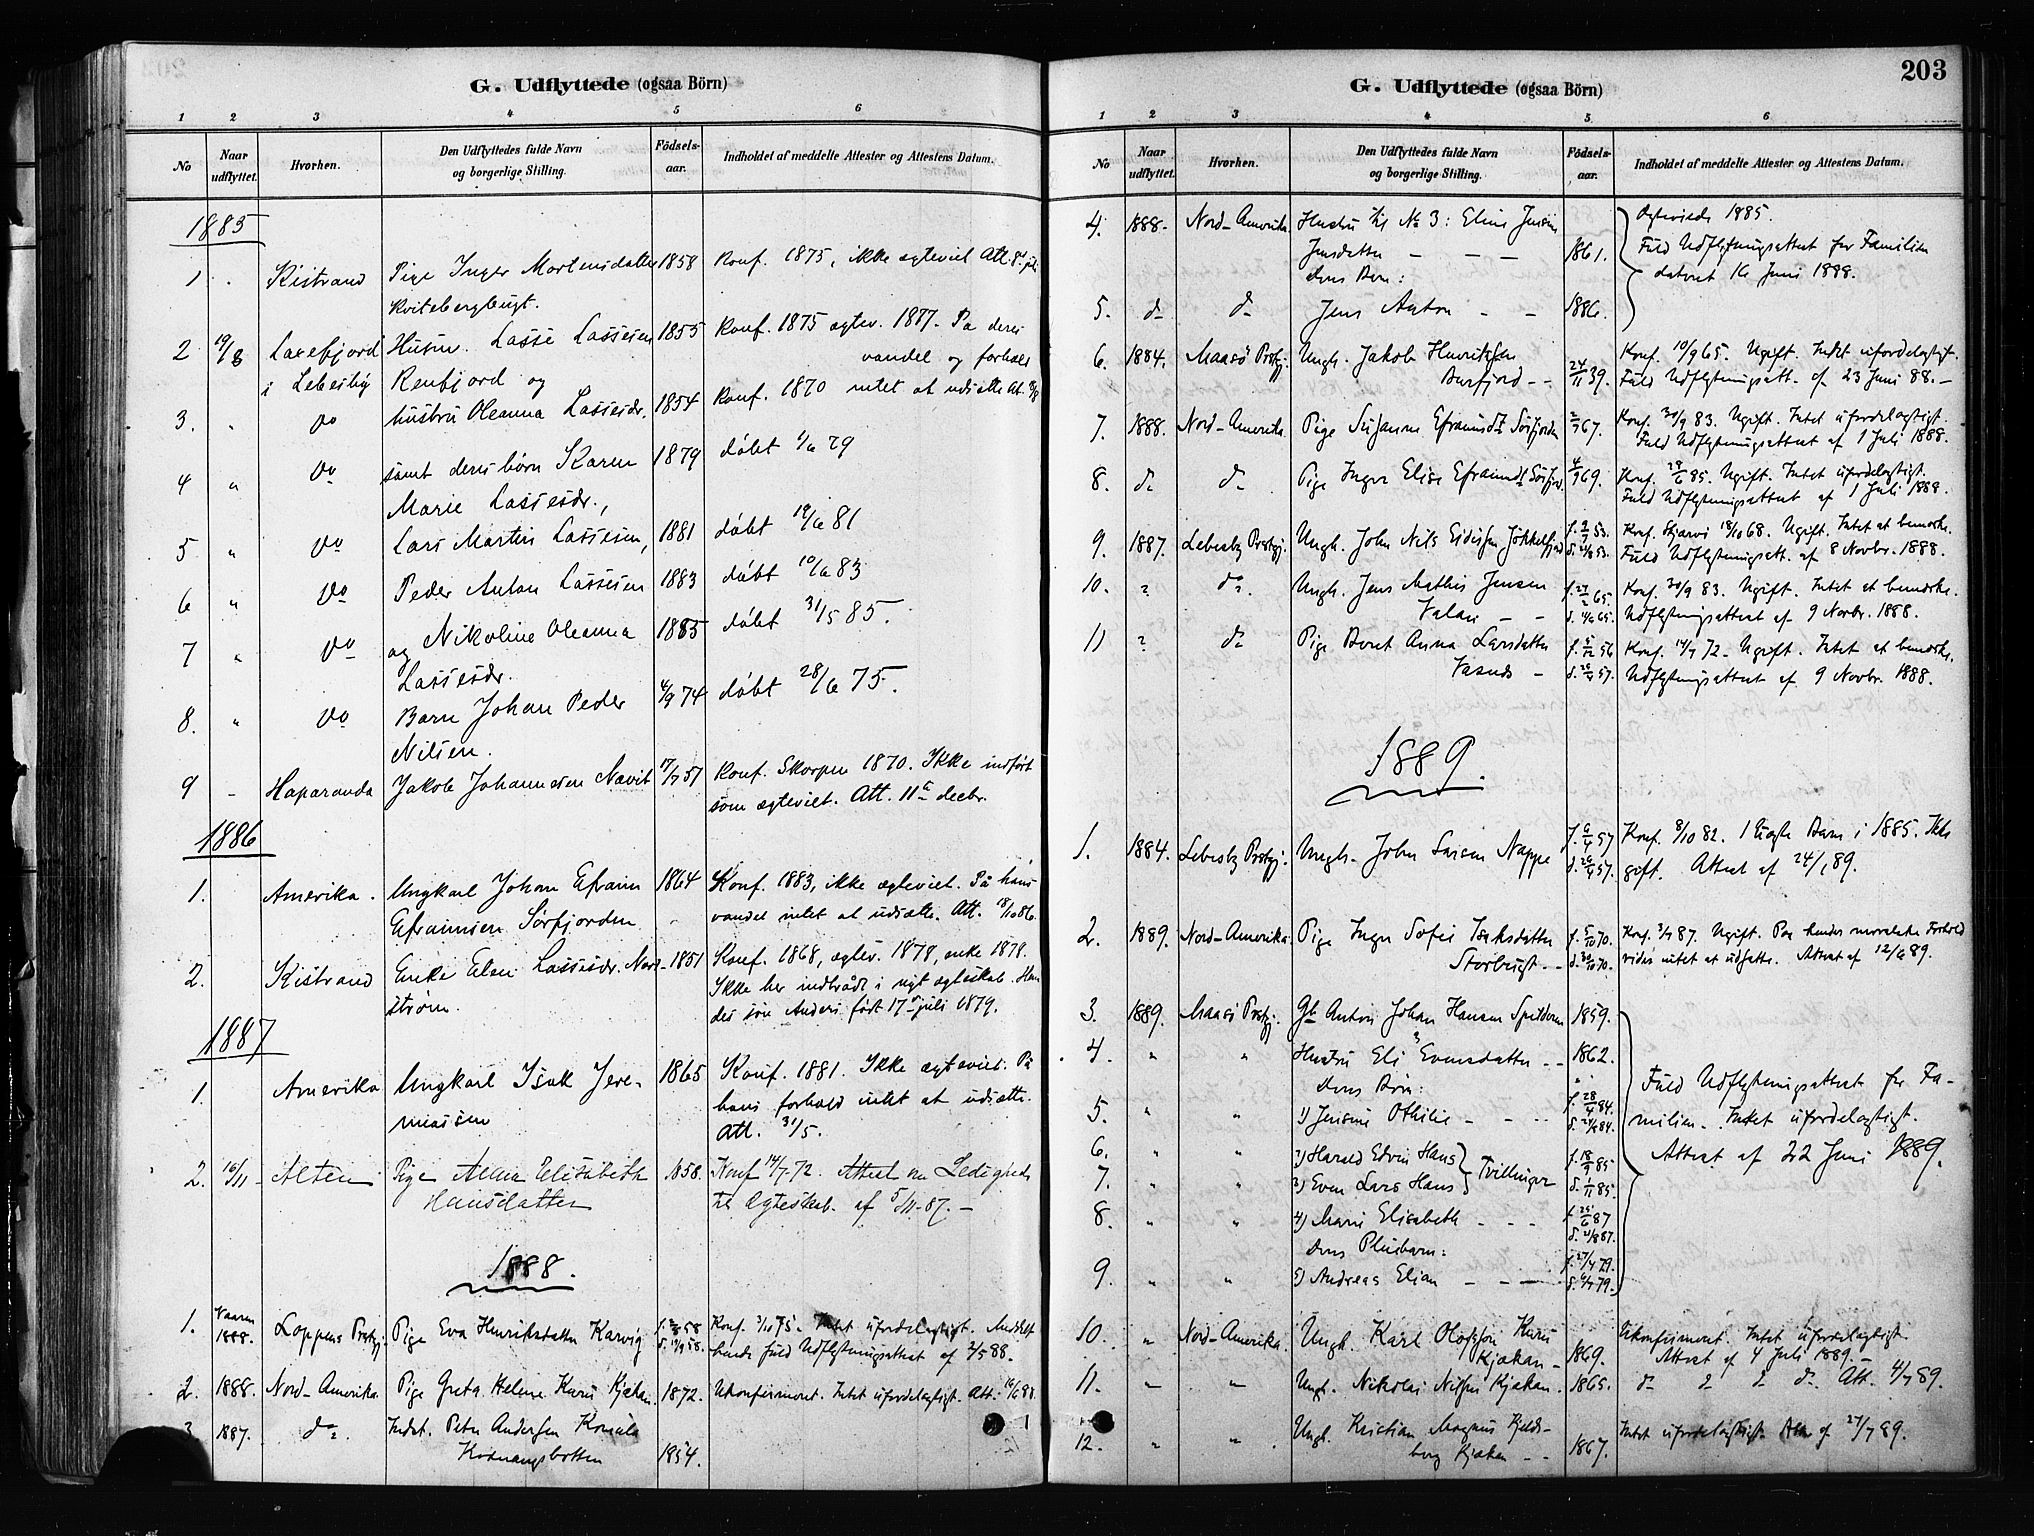 G. Udflyttede (ogsaa Börn)
1 2 3 4 5 6
No Naar udflyttet. Hvorhen. Den Udflyttedes fulde Navn og borgerlige Stilling. Födsels-aar. Indholdet af meddelte Attester og Attestens Datum.
1885
1 Kistrand Pige Inger Mortensdatter 1858 Konf. 1875, ikke egteviet Att. 8d juli
Kvitebergbugt.
2 19/8 Laxefjord Husm. Lasse Lassesen 1855 Konf. 1875 egtev. 1877. Pa deres
i Lebesby Renfjord og vandel og forhold
3. " Do hustru Oleanna Lassesdr. 1854 Konf. 1870 intet at udsætte At.
4 " Do samt deres børn Karen 1879 døbt 1/6 79
Marie Lassesdr.,
5 " Do Lars Martin Lassesen, 1881 døbt 19/6 81
6 " Do Peder Anton Lassesen 1883 døbt 10/6 83
7 " Do og Nikoline Oleanna 1885 døbt 31/5 85.
Lassesdr.
8. " Do Barn Johan Peder 4/9 74 døbt 28/6 75.
Nilsen.
9 - Haparanda Jakob Johannesen Navit 17/7 51 Konf. Skorpen 1870. Ikke indført
som egteviet. Att. 11te decbr.
1886
1. Amerika. Ungkarl Johan Efraim 1864 Konf. 1883, ikke egteviet. På hans
Efraimsen Sørfjorden vandel intet at udsætte. Att. 18/10 86.
2. Kistrand Enke Elen Lassesdr. Nord- 1851 Konf. 1868, egtev. 1878, enke 1878.
strøm. Ikke her indtrådt i nyt egteskab. Hen
des søn Anders født 17de juli 1879.
1887
1. Amerika Ungkarl Isak Jere- 1865 Konf. 1881. Ikke egteviet. På
miassen hans forhold intet at udsætte.
Att. 31/5.
2. 16/11 - Alten Pige Anna Elisabeth 1858. Konf 14/7 72. Attest om Ledighed
Hansdatter til Egteskab. af 5/11-87. -
1888.
1. Vaaren 1888. Loppens Prstgj. Pige Eva Henriksdatter Karvig f. 2/8 58 Konf. 3/10 75. Intet ufordelagtigt. Meddelt
d. 19/9 58. hende fuld Udflytningsattest af 2/5 88.
2. 1888. Nord-Amerika Pige Greta Helene Karis Kjækan. 1872. Ukonfirmeret. Intet ufordelagtigt. Att. 16/6 88.
3 1887. do. Indst. Peter Andersen
Kvænangsbotten 1854.
203
G. Udflyttede (ogsaa Börn)
1 2 3 4 5 6
No Naar udflyttet. Hvorhen. Den Udflyttedes fulde Navn og borgerlige Stilling. Födsels-aar. Indholdet af meddelte Attester og Attestens Datum.
4. 1888. Nord-Amerika Hustru til No 3: Eline Jensine Egteviede 1885.
Jensdatter - - - 1861. Fuld Udflytningsattest for Familien
deres Barn: dateret 16 Juni 1888.
5. do do Jens Anton - - 1886.
6. 1884. Maasö Prstgj. Ungk. Jakob Henriksen Konf. 10/9 65. Ugift. Intet ufordelagtigt.
Burfjord - - 24/11 39. Fuld Udflytningsatt. af 23 Juni 88. -
7. 1888. Nord-Amerika. Pige Susanne Efraimsdt Sörfjorden 2/7 67. Konf. 30/9 83. Ugift. Intet ufordelagtigt.
Fuld Udflytningsattest af 1 Juli 1888.
8. do do Pige Inger Elise Efraimsdt Sörfjord. 4/9 69. Konf. 28/6 85. Ugift. Intet ufordelagtigt.
Fuld Udflytningsattest af 1 Juli 1888.
9. 1887. Lebesby Prstgj. Ungk. John Nils Eidissen Jökkelfjord f. 2/7 53. Konf. Skjærvö 18/10 68. Ugift. Intet at bemærke.
Fuld Udflytningsatt. af 8 Novbr. 1888.
10. " do. Ungk. Jens Mathis Jensen f. 27/2 65. Konf. 30/9 83. Ugift. Intet at bemærke.
Valan - - d. 11/6 65. Udflytningsattest af 9 Novbr. 1888.
11 " do Pige Beret Anna Larsdatter f. 5/12 56 Konf. 14/7 72 - Ugift. Intet at bemærke.
- d. 26/4 57. Udflytningsattest af 9 Novbr. 1888.
1889.
1. 1884. Lebesby Prstgj. Ungk. John Nappe f. 6/4 57 Konf. 8/10 82. 1 Uægte Barn i 1885. Ikke
d. 26/4 57. gift. Attest af 24/1 89.
2. 1889. Nord-Amerika. Pige Inger Sofie Isaksdatter f. 5/10 70. Konf. 3/7 87. Ugift. Paa hendes moralske Forhold
Storbugt. - d. 30/10 70. vides intet at udsætte. Attest af 12/6 89.
3. 1889. Maasö Prstgj. Gb Anton Johan Hansen Spilderen 1859.
4. " " Hustru Eli Evensdatter - - 1862.
Deres Börn:
5. " " 1) Jensine Othilie - - - f. 28/4 84. Fuld Udflytningsattest for Fa-
milien. Intet ufordelagtigt.
6. " " 2) Harald Edvin Hans f. 18/9 85 Attest af 22 Juni 1889.
7. " " 3) Even Lars Hans Tvillinger d. 1/11 85.
8. " " 4) Marie Elisabeth - - - f. 25/6 87
Deres Pleiebarn: d. 21/8 87.
9. " " 5) Andreas Elian - - - f. 27/4 79.
10. " Nord-Amerika. Ungk. Karl Olafssen Karis Ukonfirmeret. Intet ufordelagtigt
Kjækan - 1869. Attest af 4 Juli 1889. -
11. " " Ungk. Nikolai Nilsen Kjækan. 1865. do " " do. Att. 4/7 89.
12. " " Ungk. Kristian Magnus Kjelds-
berg Kjækan - - 1867. Intet ufordelagtigt. Att af 27/7 89.